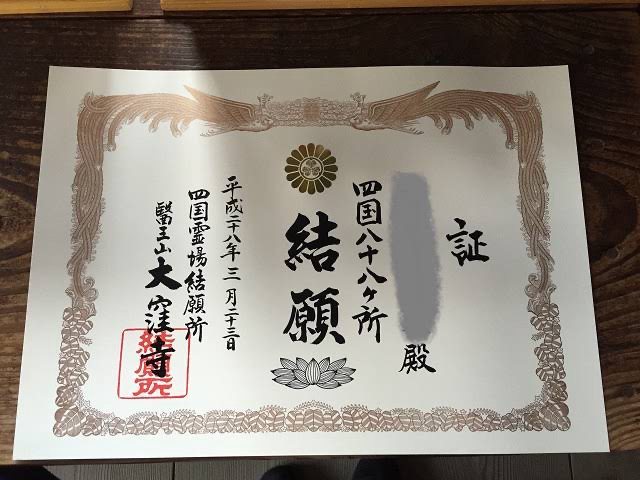 証
殿
四国八十八ヶ所
結願
平成二十八年三月二十三日
四国霊場結願所
醫王山大窪寺
結願所